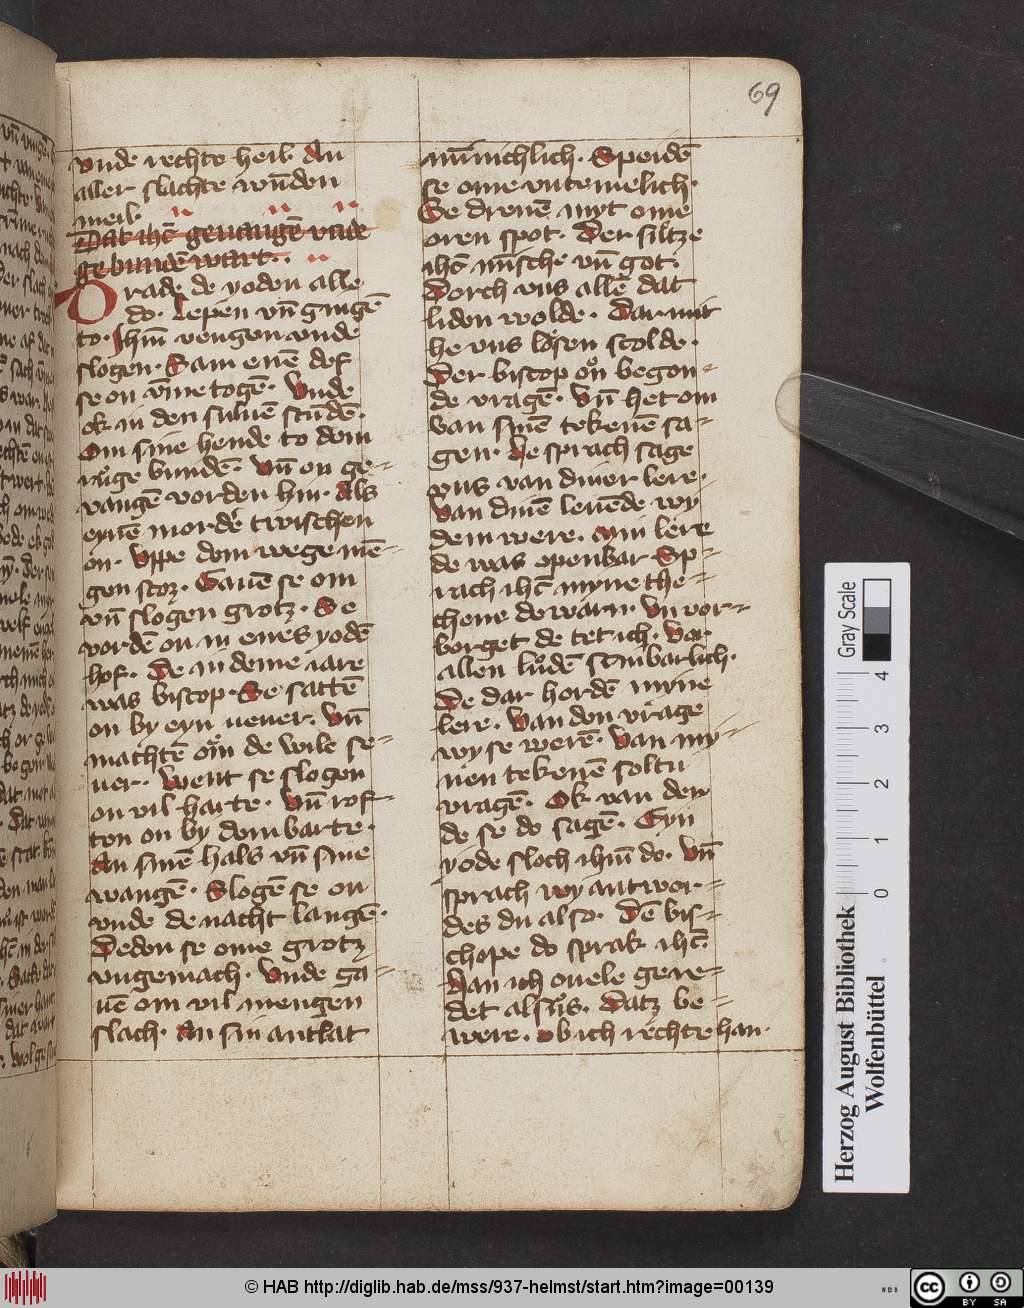 69
vnde rechte heil. An
aller slachte wūden
meil.
Dat ihc̄ geuangē vnde
gebundē wart.
Drade de yoden alle
do. Lepen vn̄ gingē
to. Ihm̄ veugen vnde
slogen. Sam enē def
se on vm̄e togē. Vnde
ok in den suluē stūdē.
Om sine hende to dem
růge bundē. Vn̄ on ge=
vangē vorden hin. Als
eynē morder twischen
on. Vppe dem wege mē=
gen stoz. Gauē se om
vn̄ slogen grotz. Se
vordē on in enes yodē
hof. De in deme iare
was biscop. Se sattē
on by eyn veuer. Vn̄
machtē om̄ de wile se=
uer. Went se slogen
on vil harte. Vn̄ rof=
ten on by dem barte.
An sinē hals vn̄ sine
wangē. Slogē se on
vnde de nacht langē.
Deden se ome grotz
vngemach. Vnde ga=
uē om vil mengen
slach. An sin antlat
min̄ichlich. Speidē
se ome vntemelich.
Se dreuē myt ome
oren spot. Der siltze
ihc̄ mīsche vn̄ got.
Dorch vns allē dat
liden wolde. Dar mit
he vns lösen scolde.
Der biscop on̊ begon=
de vragē. Vn̄ het om
van sinē tekenē sa=
gen. He sprach sage
vns van diner lere.
Van dinē leuēde wy
dem were. Min lere
de was openbar Sp=
rach ihc̄ myne the=
chene de warn. Vn vor=
borget de tet ich. Vor
allen lůdē scinbarlich.
De dar hordē myne
lere. Van den vrage
wy se werē. Van my=
nen tekenē soltu
vragē. Ok van den
de se do sagē. Eyn
yode sloch ihm̄ do. Vn̄
sprach wy antwor=
des du also. Dē bis=
chope do sprak ihc̄.
Han ich ouele gere=
det alsůs. Datz be=
were. Ob ich rechte han.
Gray Scale
4
3
2
1
0
Herzog August Bibliothek
Wolfenbüttel
© HAB http://diglib.hab.de/mss/937-helmst/start.htm?image=00139
WDB
CC BY SA